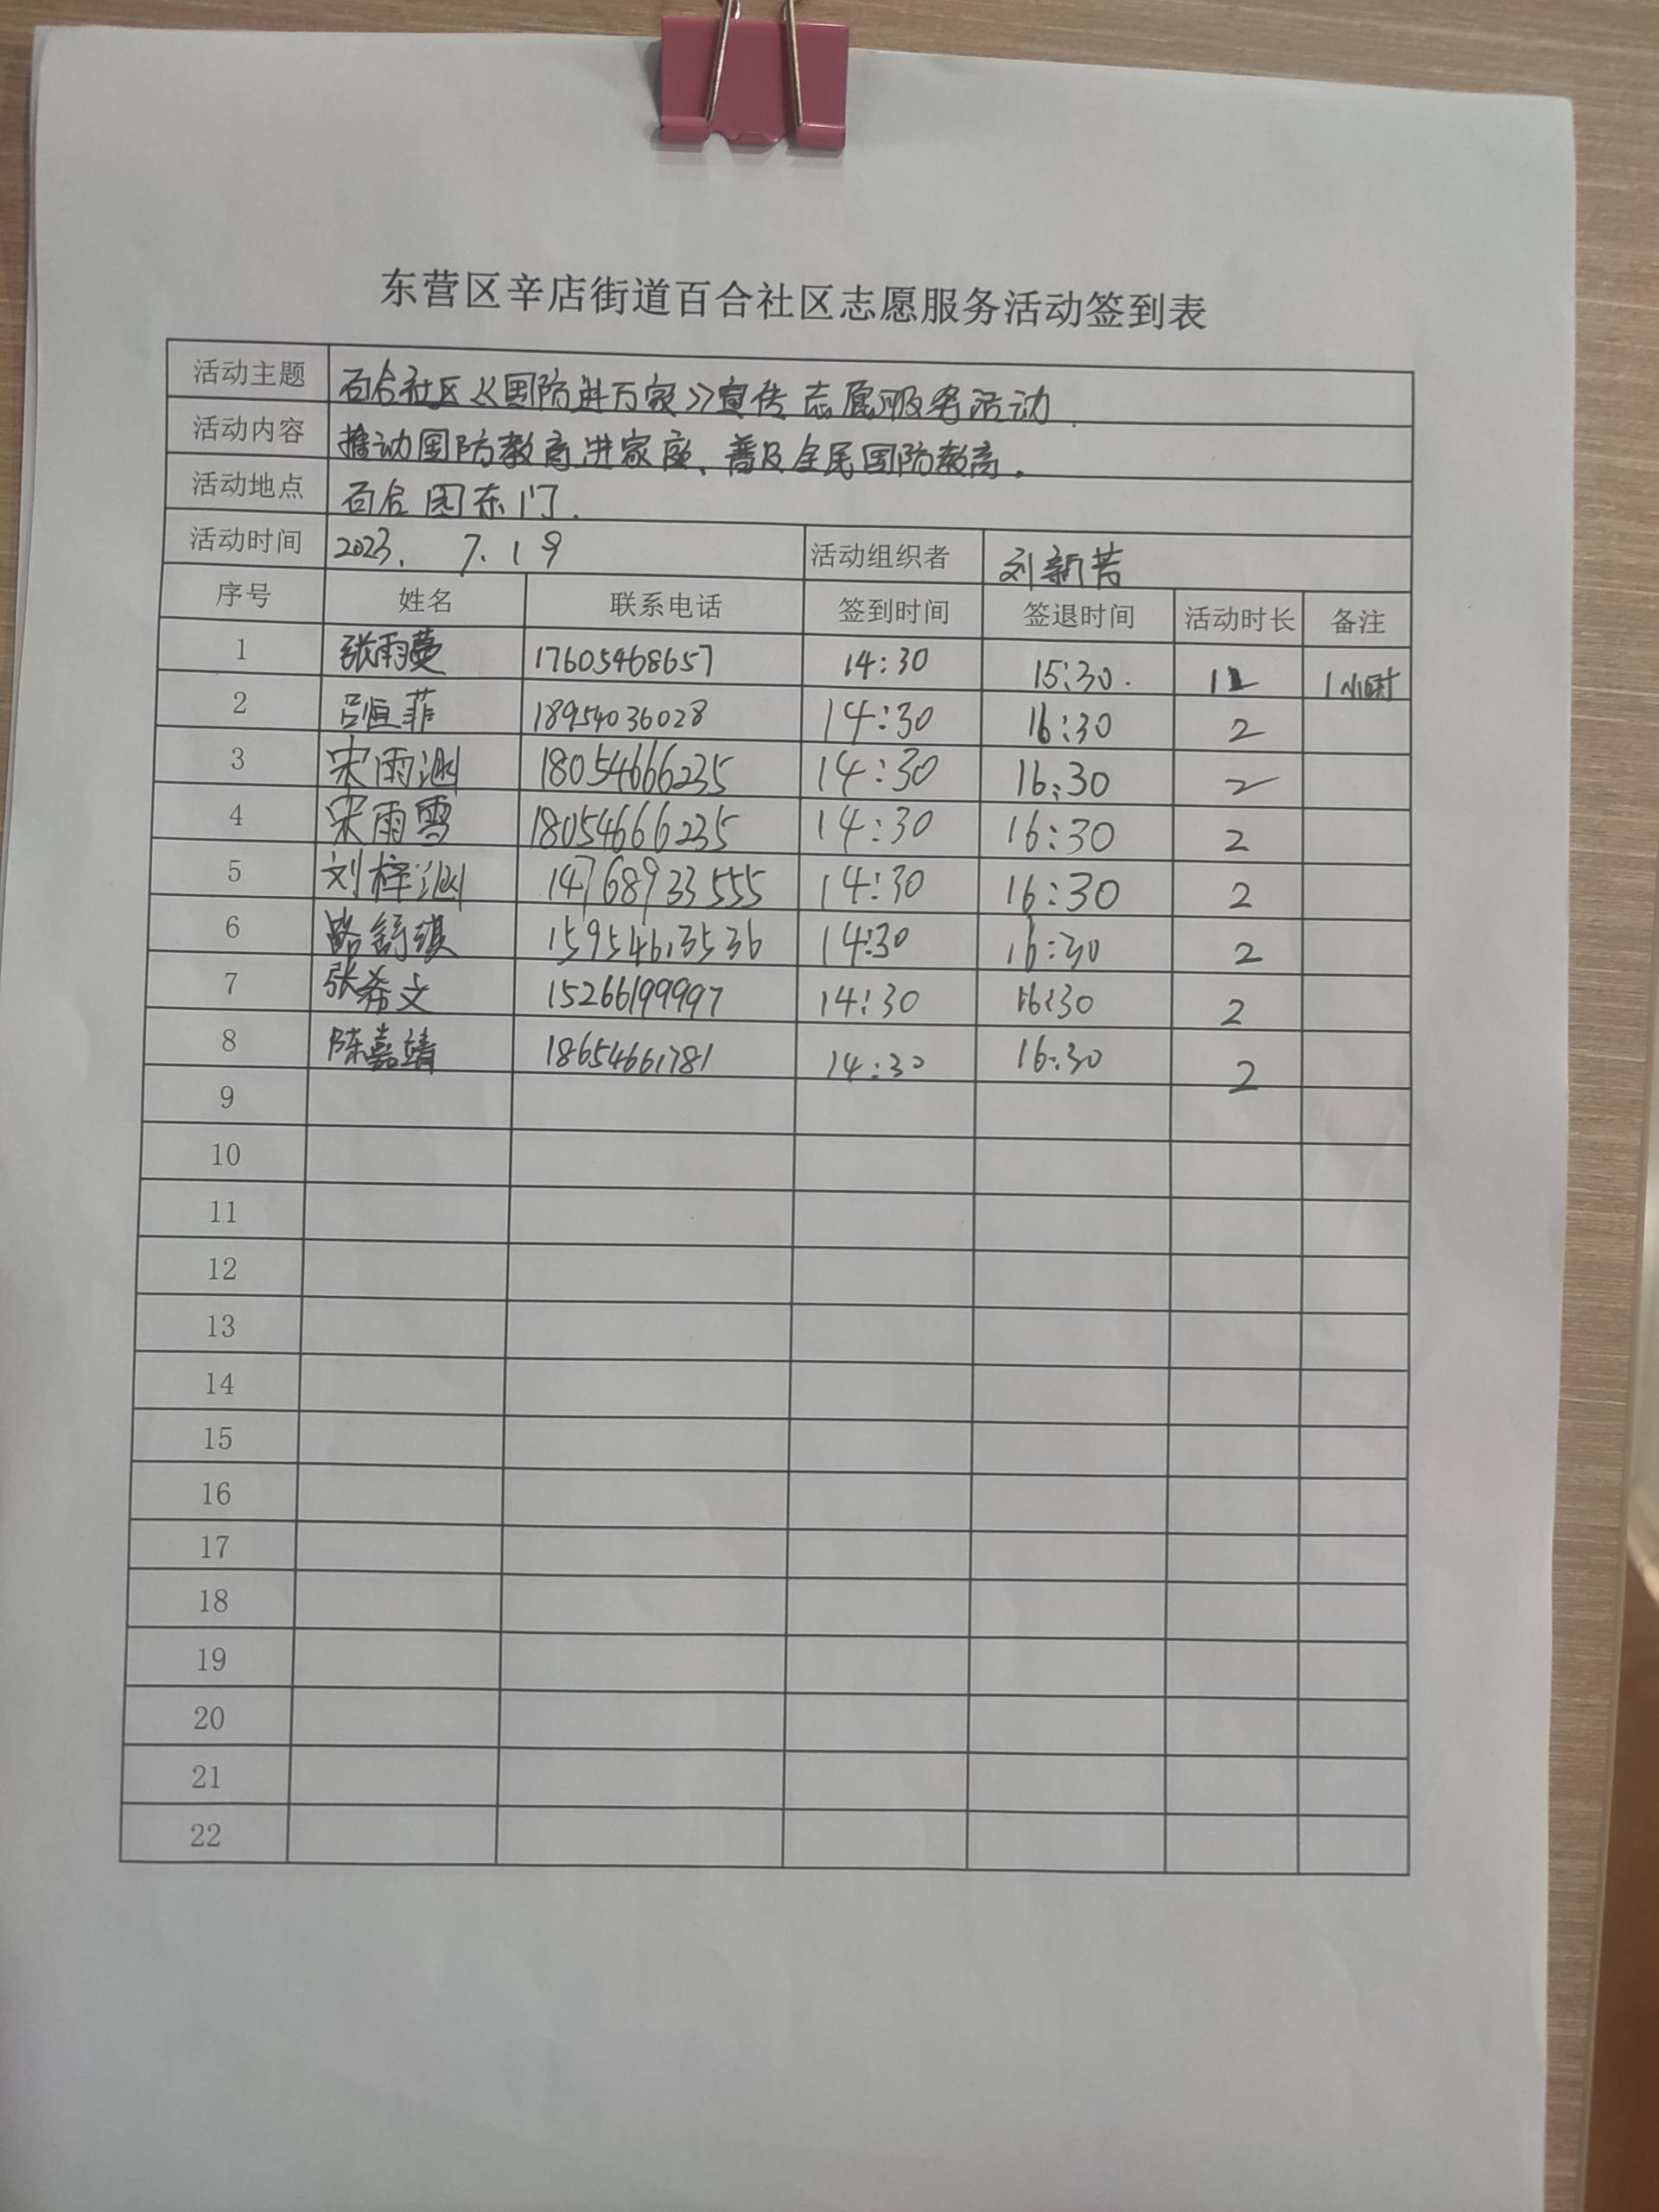 东营区辛店街道百合社区志愿服务活动签到表
活动主题 百合社区《国防进万家》宣传志愿服务活动.
活动内容 推动国防教育进家庭、普及全民国防教育。
活动地点 百合园东门.
活动时间 2023. 7.19 活动组织者 刘新芳
序号 姓名 联系电话 签到时间 签退时间 活动时长 备注
1 张雨蔓 17605468657 14:30 15:30. 1 1小时
2 吕恒菲 18954036028 14:30 16:30 2
3 宋雨涵 18054666235 14:30 16:30 2
4 宋雨雪 18054666235 14:30 16:30 2
5 刘梓涵 14768933555 14:30 16:30 2
6 路舒琪 15954613536 14:30 16:30 2
7 张希文 15266199997 14:30 16:30 2
8 陈嘉靖 18654661781 14:30 16:30 2
9
10
11
12
13
14
15
16
17
18
19
20
21
22